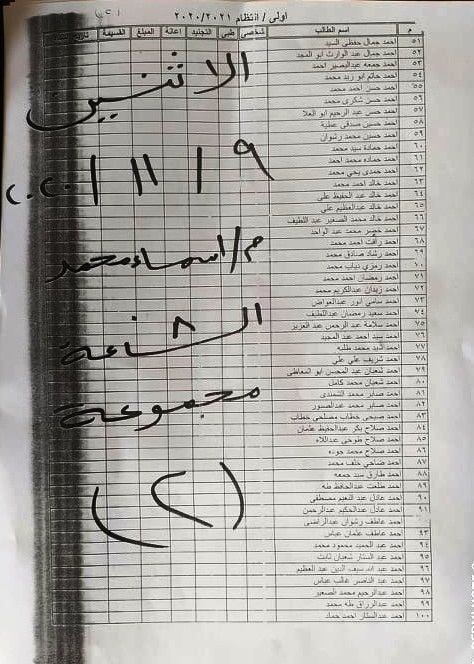 اولى / انتظام ٢٠٢٠/٢٠٢١
م اسم الطالب شخصي طبي التجنيد اعانة المبلغ القسيمة
٥١ احمد جمال حفظى السيد
٥٢ احمد جمال عبد الوارث ابو المجد
٥٣ احمد جمعه عبدالبصير احمد
٥٤ احمد حاتم ابو زيد محمد
٥٥ احمد حسن احمد محمد
٥٦ احمد حسن شكرى محمد
٥٧ احمد حسن عبد الرحيم ابو العلا
٥٨ احمد حسين صدقى عطية
٥٩ احمد حسين محمد رشوان
٦٠ احمد حمادة سيد محمد
٦١ احمد حماده محمد احمد
٦٢ احمد حمدى يحي محمد
٦٣ احمد خالد احمد محمد
٦٤ احمد خالد عبد الحفيظ على
٦٥ احمد خالد عبدالعظيم على
٦٦ احمد خالد محمد الصغير عبد اللطيف
٦٧ احمد خضر محمد عبد الواحد
٦٨ احمد رافت احمد محمد
٦٩ احمد رشاد صادق محمد
٧٠ احمد رمزي دياب محمد
٧١ احمد رمضان احمد محمد
٧٢ احمد زيدان عبدالكريم محمد
٧٣ احمد سامي انور عبدالعواض
٧٤ احمد سعيد رمضان عبداللطيف
٧٥ احمد سلامة عبد الرحمن عبد العزيز
٧٦ احمد سيد احمد عبد المجيد
٧٧ احمد سيد محمد طلبه
٧٨ احمد شريف علي علي
٧٩ احمد شعبان عبد المحسن ابو المعاطي
٨٠ احمد شعبان محمد كامل
٨١ احمد صابر محمد الشمندى
٨٢ احمد صابر محمد عبدالصبور
٨٣ احمد صبحى خطاب مصطفى خطاب
٨٤ احمد صلاح بكر عبدالحفيظ عثمان
٨٥ احمد صلاح طوخى عبداللاه
٨٦ احمد صلاح محمد جوده
٨٧ احمد ضاحي خلف محمد
٨٨ احمد طارق سيد جمعه
٨٩ احمد طلعت عبدالحافظ طه
٩٠ احمد عادل عبد النعيم مصطفى
٩١ احمد عادل عبدالحكيم عبدالرحمن
احمد عاطف رشوان عبدالراضى
٩٣ احمد عاطف عثمان عباس
٩٤ احمد عبد الحميد محمود محمد
٩٥ احمد عبد الستار شعبان ثابت
٩٦ احمد عبد الله سيف الدين عبد العظيم
٩٧ احمد عبد الناصر غالب عباس
٩٨ احمد عبدالرحيم محمد الصغير
٩٩ احمد عبدالرزاق طه محمد
١٠٠ احمد عبدالستار احمد حماد
الاثنين
٩ / ١١ / ٢٠٢٠
م/ اسماء محمد
الساعة ٨
مجموعة
(٢)